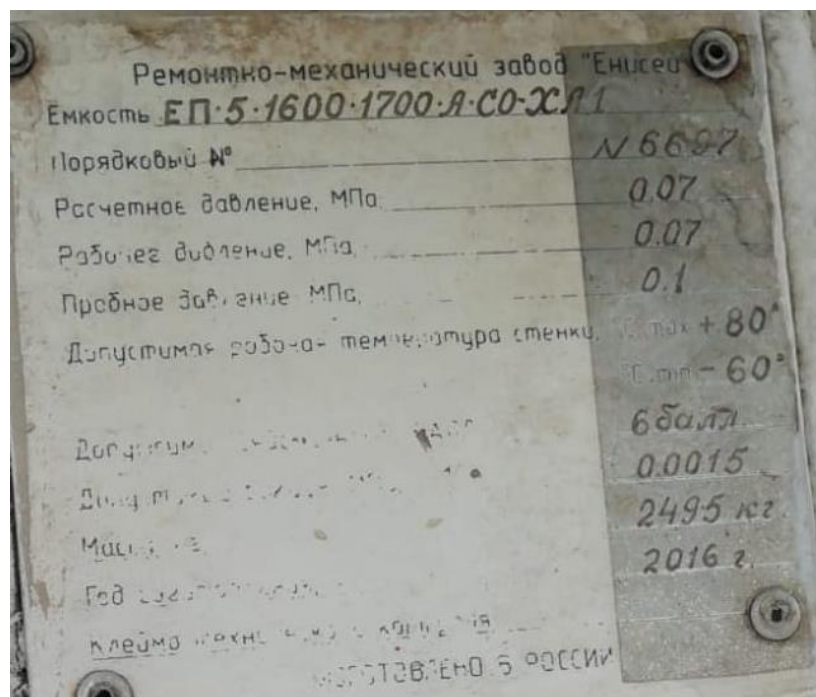 Ремонтно-механический завод "Енисей
Емкость ЕП·5·1600·1700·А·СО-ХЛ1
Порядковый № N 6697
Расчетное давление, МПа 0.07
Рабочее давление, МПа 0.07
Пробное давление МПа, 0.1
Допустимая рабочая температура стенки, °С. max +80°
°С. min -60°
6 балл
0.0015
Масса 2495 кг.
Год 2016 г.
Клеймо
ИЗГОТОВЛЕНО В РОССИИ